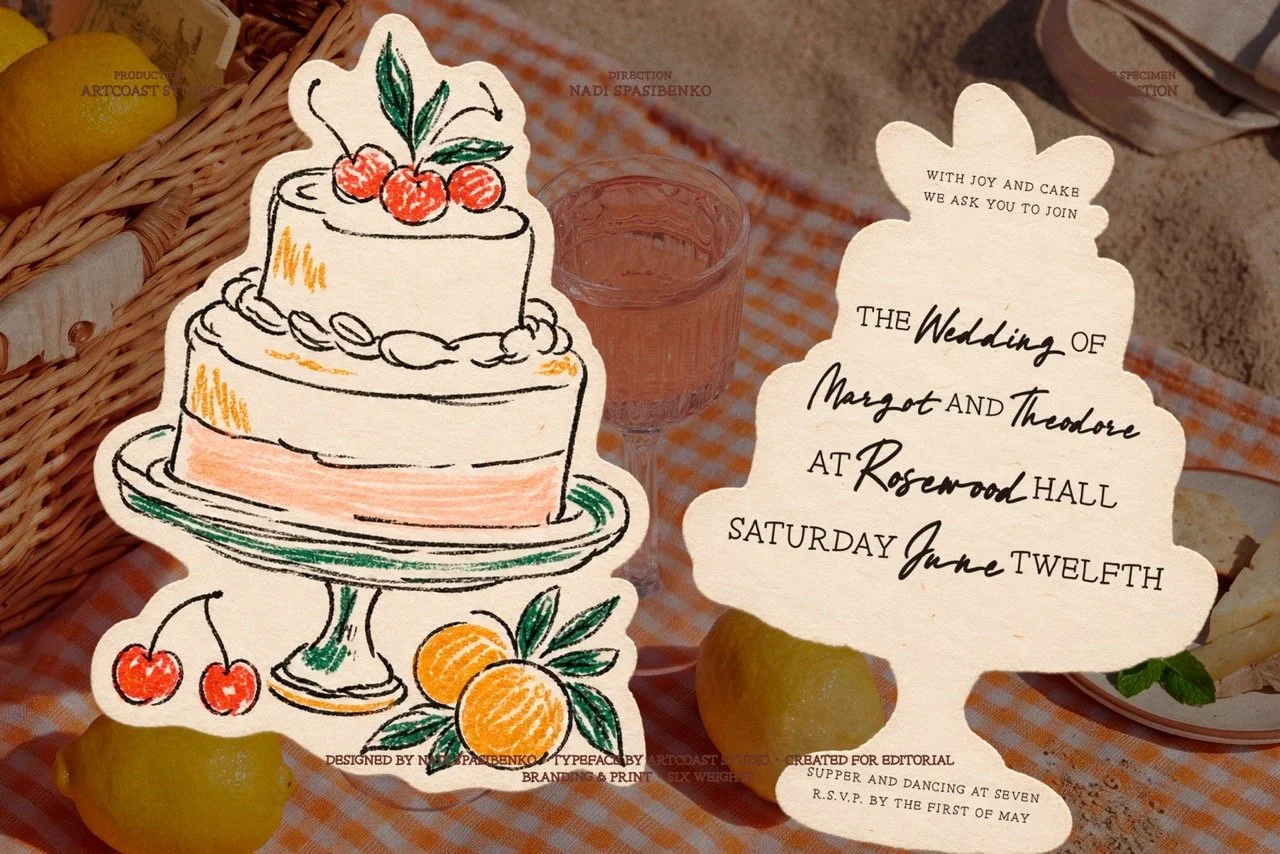 PRODUCTION
ARTCOAST STUDIO
DIRECTION
NADI SPASIBENKO
SPECIMEN
WITH JOY AND CAKE
WE ASK YOU TO JOIN
THE Wedding OF
Margot AND Theodore
AT Rosewood HALL
SATURDAY June TWELFTH
SUPPER AND DANCING AT SEVEN
R.S.V.P. BY THE FIRST OF MAY
DESIGNED BY NADI SPASIBENKO · TYPEFACE BY ARTCOAST STUDIO · CREATED FOR EDITORIAL
BRANDING & PRINT · SIX WEIGHTS